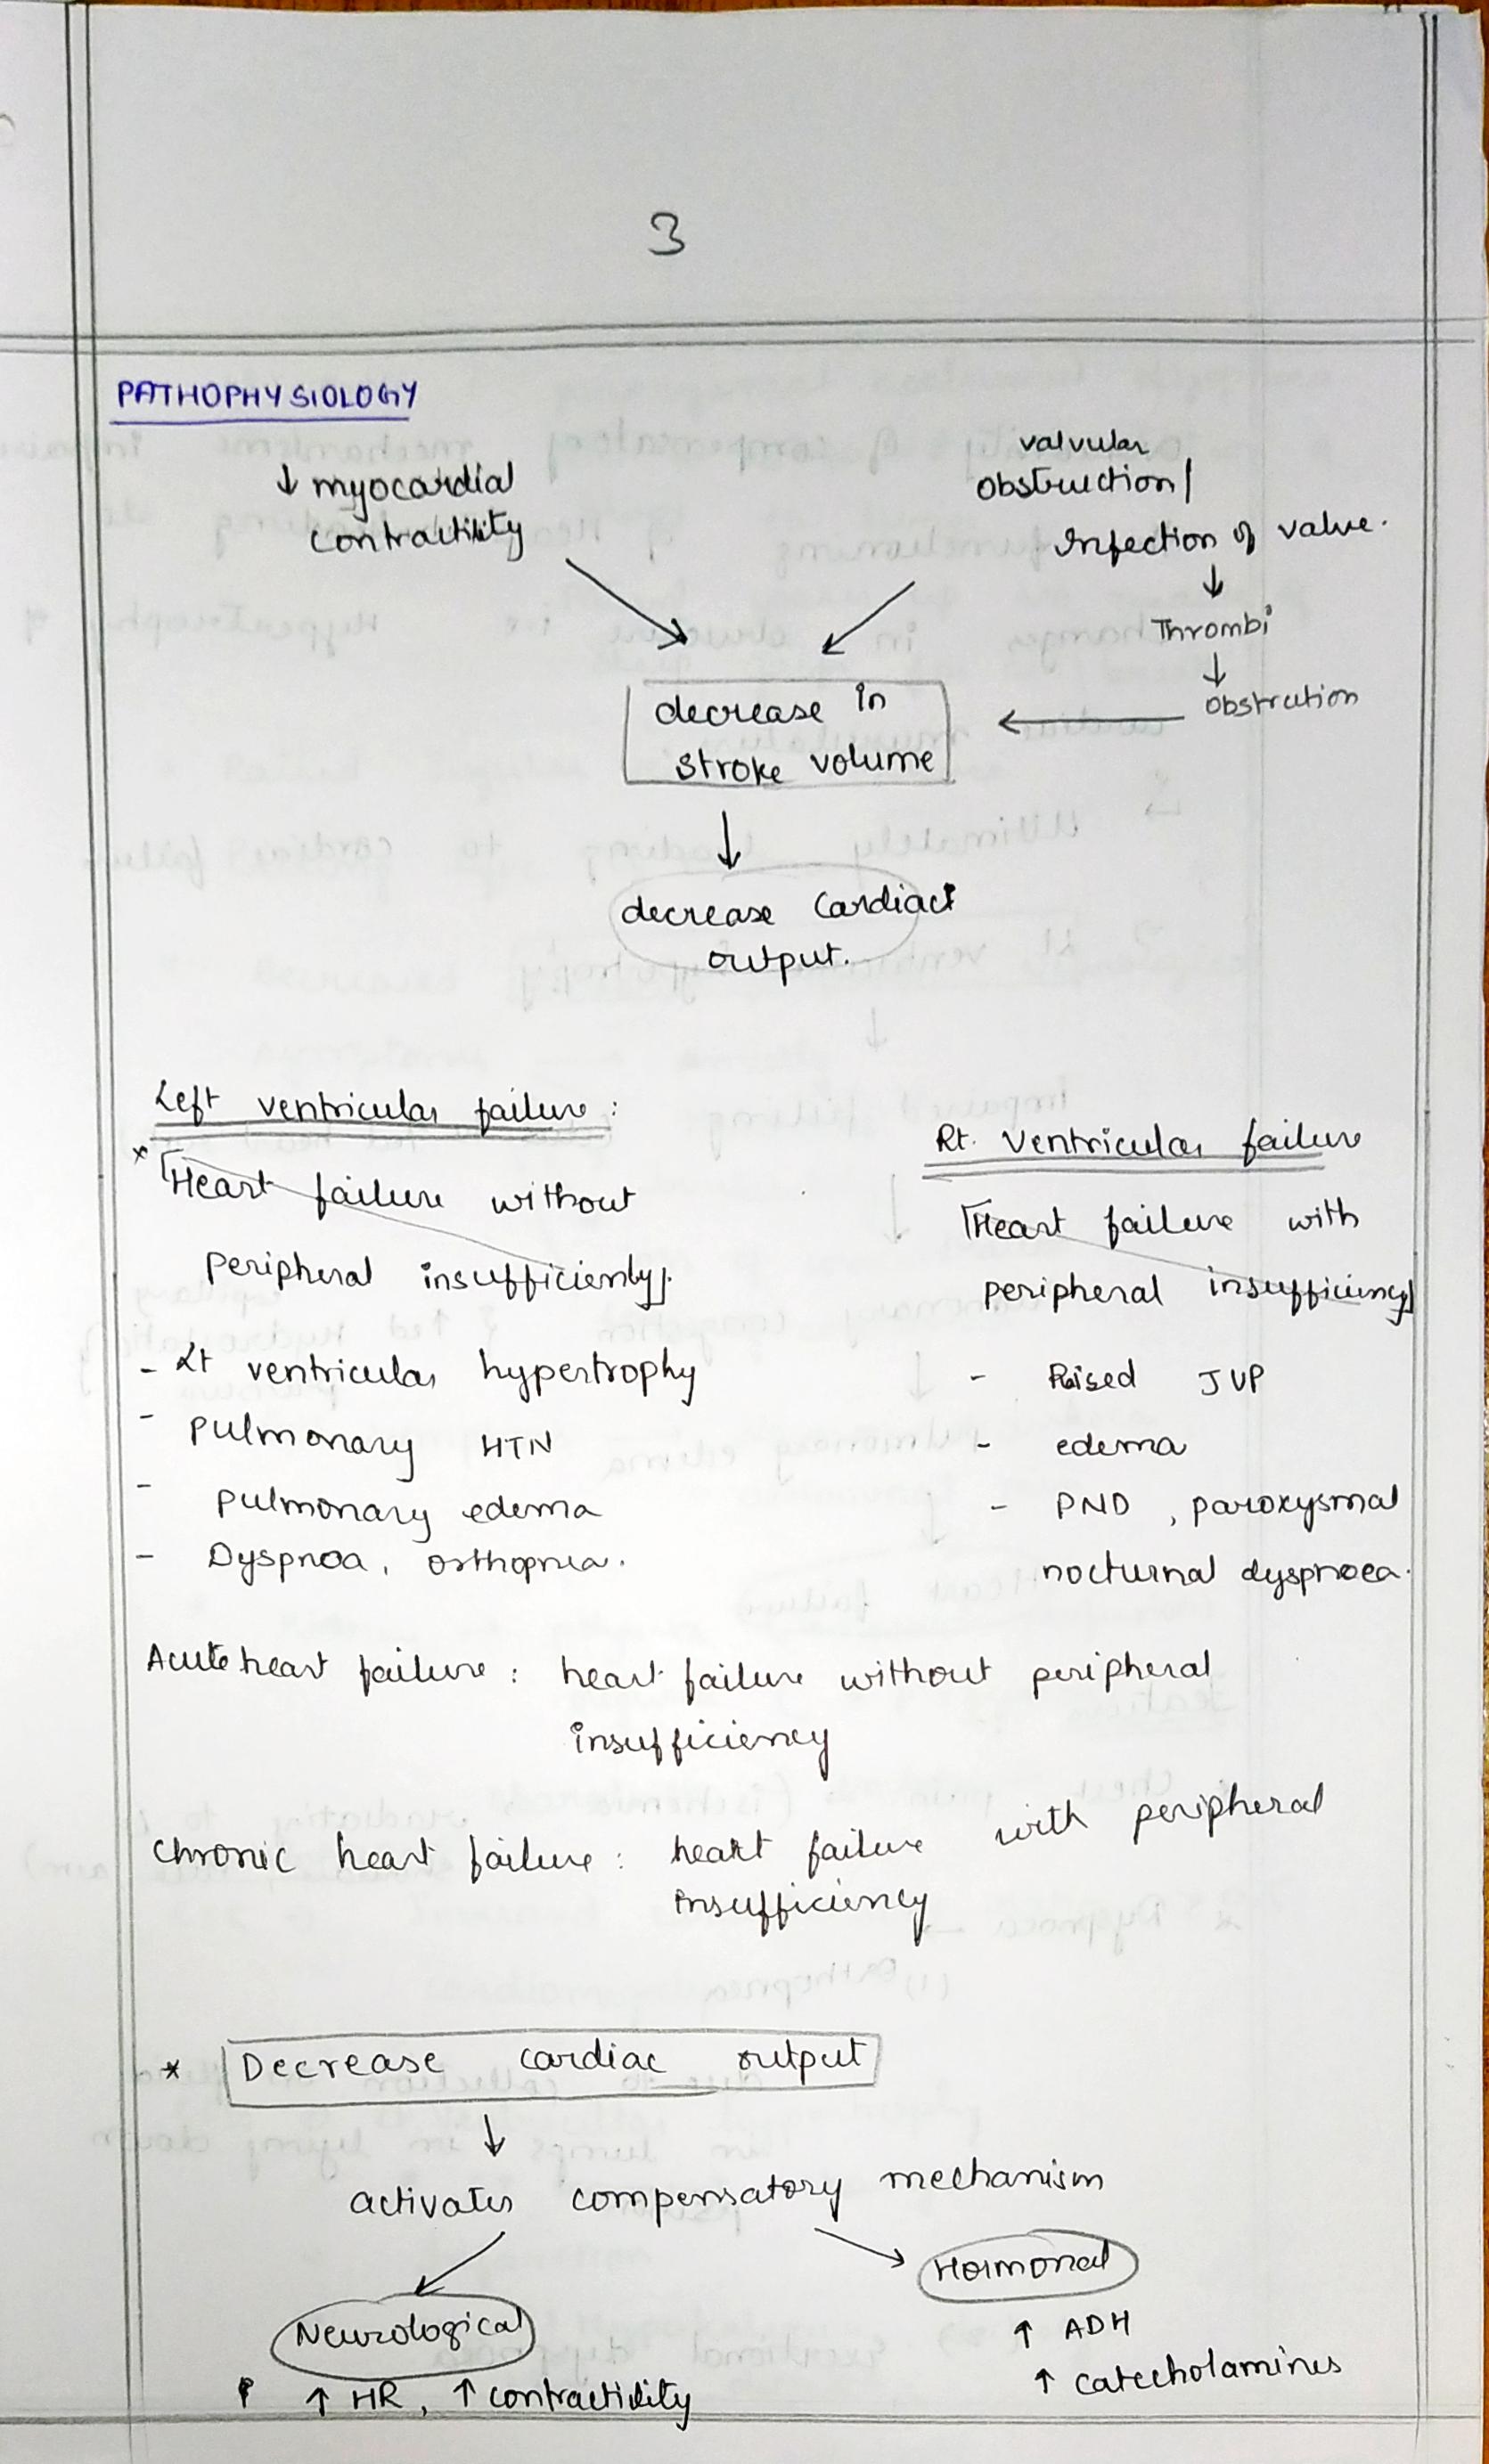 3
PATHOPHYSIOLOGY
↓ myocardial
contractility
valvular
obstruction/
Infection of valve.
↓
Thrombi
↓
obstrution
decrease in
stroke volume
↓
decrease cardiac
output.
Left ventricular failure:
* [Heart failure without
peripheral insufficiently].
- Lt ventricular hypertrophy
- pulmonary HTN
- pulmonary edema
- Dyspnoa, orthopnea.
Rt. ventricular failure
[Heart failure with
peripheral insufficiency]
- Raised JVP
- edema
- PND, paroxysmal
nocturnal dyspnoea.
Acute heart failure: heart failure without peripheral
insufficiency
Chronic heart failure: heart failure with peripheral
insufficiency
* Decrease cardiac output
↓
activates compensatory mechanism
Neurological
↑ HR, ↑ contractility
Hormonal
↑ ADH
↑ catecholamines